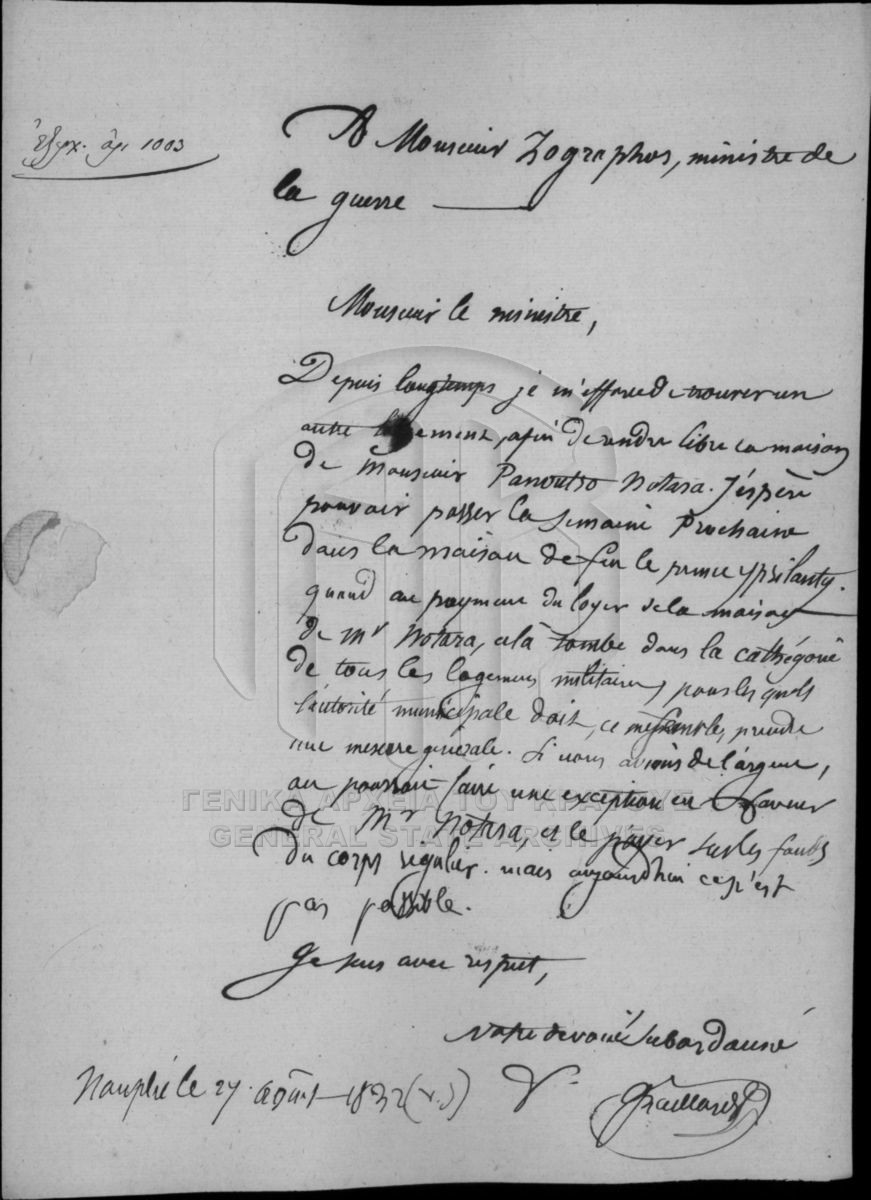 ἐξερχ. ἀρι 1003
A Monsieur Zographos, ministre de
la guerre
Monsieur le ministre,
Depuis longtemps je m'efforce de trouver un
autre logement, afin de rendre libre la maison
de Monsieur Panoutso Notara. J'espère
pouvoir passer la semaine prochaine
dans la maison de feu le prince Ypsilanty.
quand au payement du loyer de la maison
de Mr Notara, cela tombe dans la cathégorie
de tous les logemens militaires, pour les quels
l'autorité municipale doit, ce me semble, prendre
une mesure générale. Si nous avions de l'argent,
on pourrait faire une exception en faveur
de Mr Notara, et le payer sur les fonds
du corps régulier. mais aujourdhui ce n'est
pas possible.
Je suis avec respect,
votre dévoué subordonné
Nauplie le 27 Août 1832 (v.s)
Graillard
ΓΕΝΙΚΑ ΑΡΧΕΙΑ ΤΟΥ ΚΡΑΤΟΥΣ
GENERAL STATE ARCHIVES